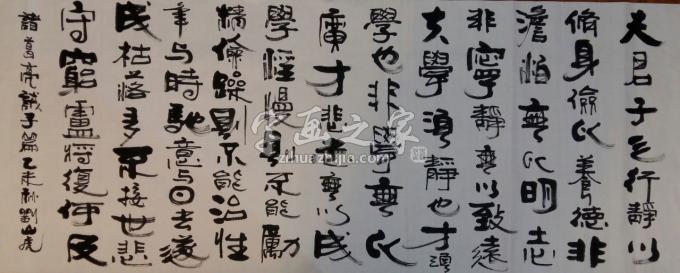 夫君子之行靜以
修身儉以養德非
澹怕無以明志
非寧靜無以致遠
夫學須靜也才須
學也非學無以
廣才非志無以成
學淫慢則不能勵
精險躁則不能治性
年与時馳意与日去遂
成枯落多不接世悲
守窮廬將復何及
諸葛亮誡子篇乙未秋劉山虎
字画之家
zihuazhijia.com